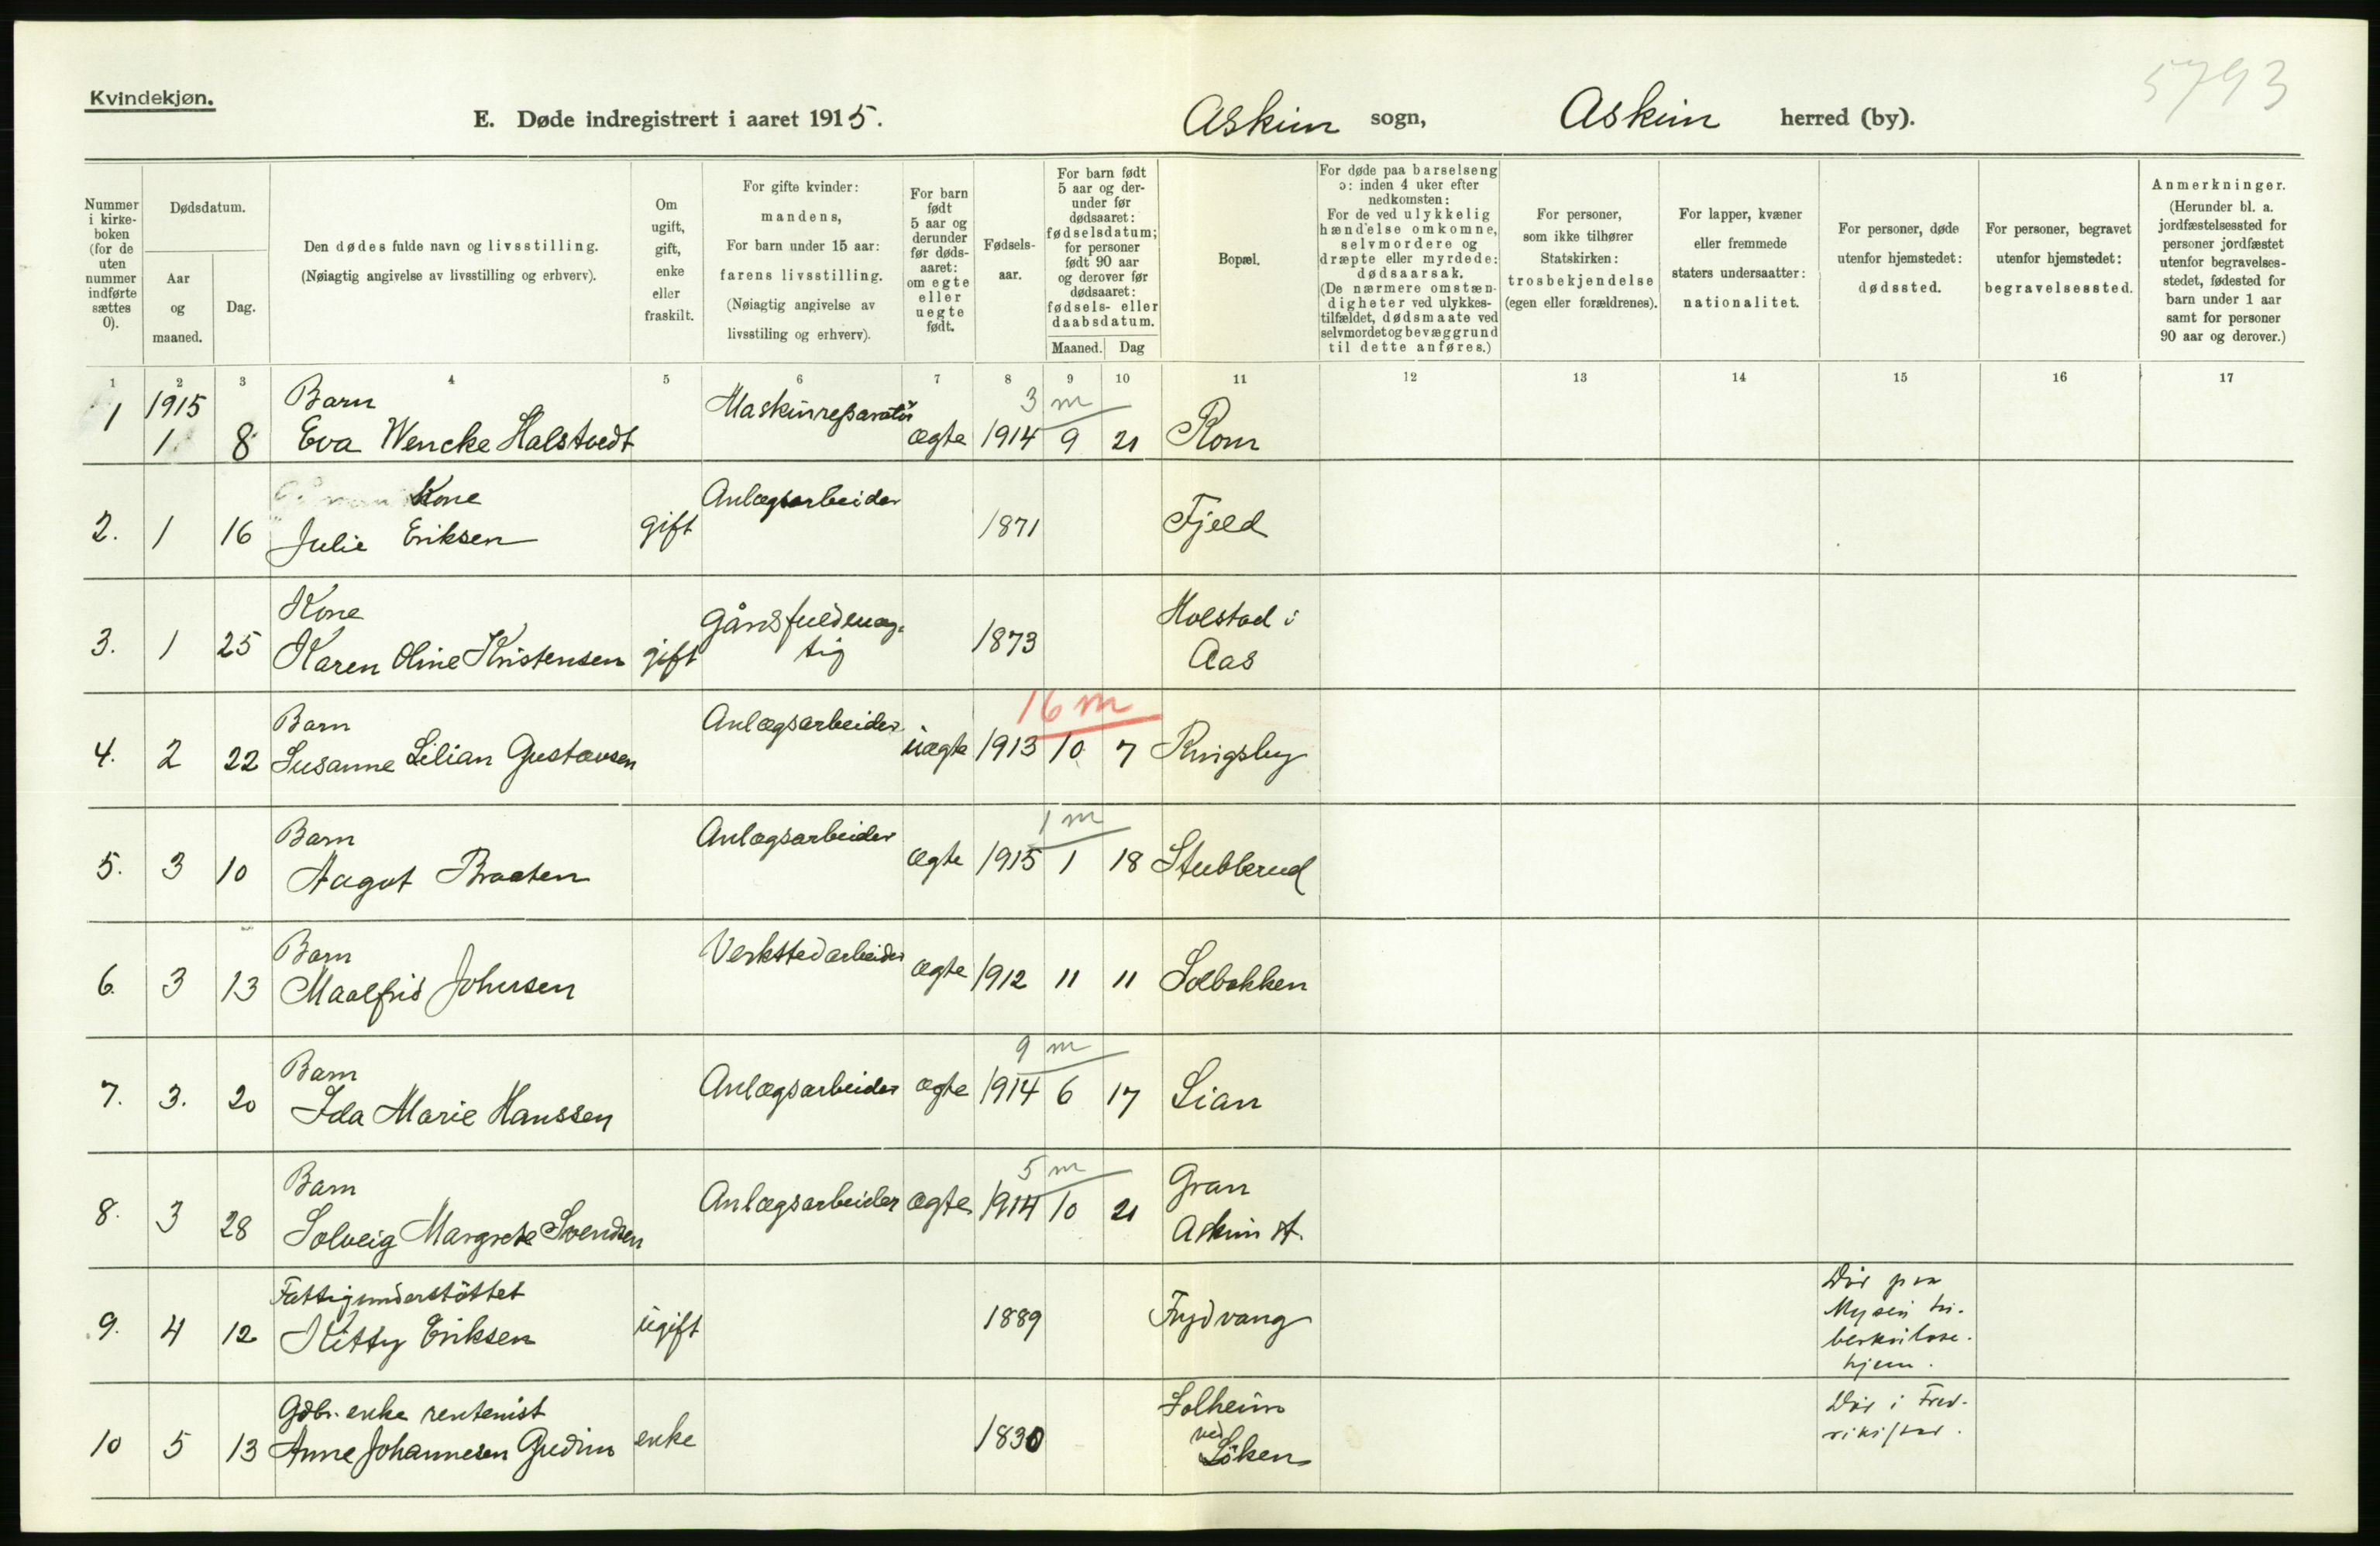 Kvindekjøn.
5793
E. Døde indregistrert i aaret 1915. Askim sogn, Askim herred (by).
Nummer i kirke-boken (for de uten nummer indførte sættes 0).
Dødsdatum.
Aar og maaned.
Dag.
Den dødes fulde navn og livsstilling.
(Nøiagtig angivelse av livsstilling og erhverv).
Om ugift, gift, enke eller fraskilt.
For gifte kvinder: mandens,
For barn under 15 aar: farens livsstilling.
(Nøiagtig angivelse av livsstiling og erhverv).
For barn født 5 aar og derunder før døds-aaret: om egte eller uegte født.
Fødsels-aar.
For barn født 5 aar og der-under før dødsaaret: fødselsdatum; for personer født 90 aar og derover før dødsaaret: fødsels- eller daabsdatum.
Maaned. Dag
Bopæl.
For døde paa barselseng ɔ: inden 4 uker efter nedkomsten:
For de ved ulykkelig hændelse omkomne, selvmordere og dræpte eller myrdede: dødsaarsak.
(De nærmere omstæn-digheter ved ulykkes-tilfældet, dødsmaate ved selvmordet og bevæggrund til dette anføres.)
For personer, som ikke tilhører Statskirken: trosbekjendelse (egen eller forældrenes).
For lapper, kvæner eller fremmede staters undersaatter: nationalitet.
For personer, døde utenfor hjemstedet: dødssted.
For personer, begravet utenfor hjemstedet: begravelsessted.
Anmerkninger.
(Herunder bl. a. jordfæstelsessted for personer jordfæstet utenfor begravelses-stedet, fødested for barn under 1 aar samt for personer 90 aar og derover.)
1 2 3 4 5 6 7 8 9 10 11 12 13 14 15 16 17
1915 Barn Maskinreparatør 3 m
1 1 8 Eva Wencke Halstvedt ægte 1914 9 21 Rom
Kone Anlægsarbeider
2. 1 16 Julie Eriksen gift 1871 Fjeld
Kone Gårdsfuldmæg- Holstad i
3. 1 25 Karen Oline Kristensen gift tig 1873 Aas
Barn Anlægsarbeider 16 m
4. 2 22 Susanne Lilian Gustavsen uægte 1913 10 7 Ringsby
Barn Anlægsarbeider 1 m
5. 3 10 Aagot Braaten ægte 1915 1 18 Stubberud
Barn Verkstedarbeider
6. 3 13 Maalfrid Johnsen ægte 1912 11 11 Solbakken
Barn 9 m
7. 3. 20 Ida Marie Hanssen Anlægsarbeider ægte 1914 6 17 Lian
Barn 5 m Gran
8. 3 28 Solveig Margrete Svendsen Anlægsarbeider ægte 1914 10 21 Askim st.
Fattigunderstöttet Död paa
9. 4 12 Kitty Eriksen ugift 1889 Frydvang Mysen tu-
berkulose-
hjem.
Gdbr. enke rentenist Solheim Död i Fred-
10 5 13 Anne Johannesen Gudim enke 1830 ved rikstad.
Löken